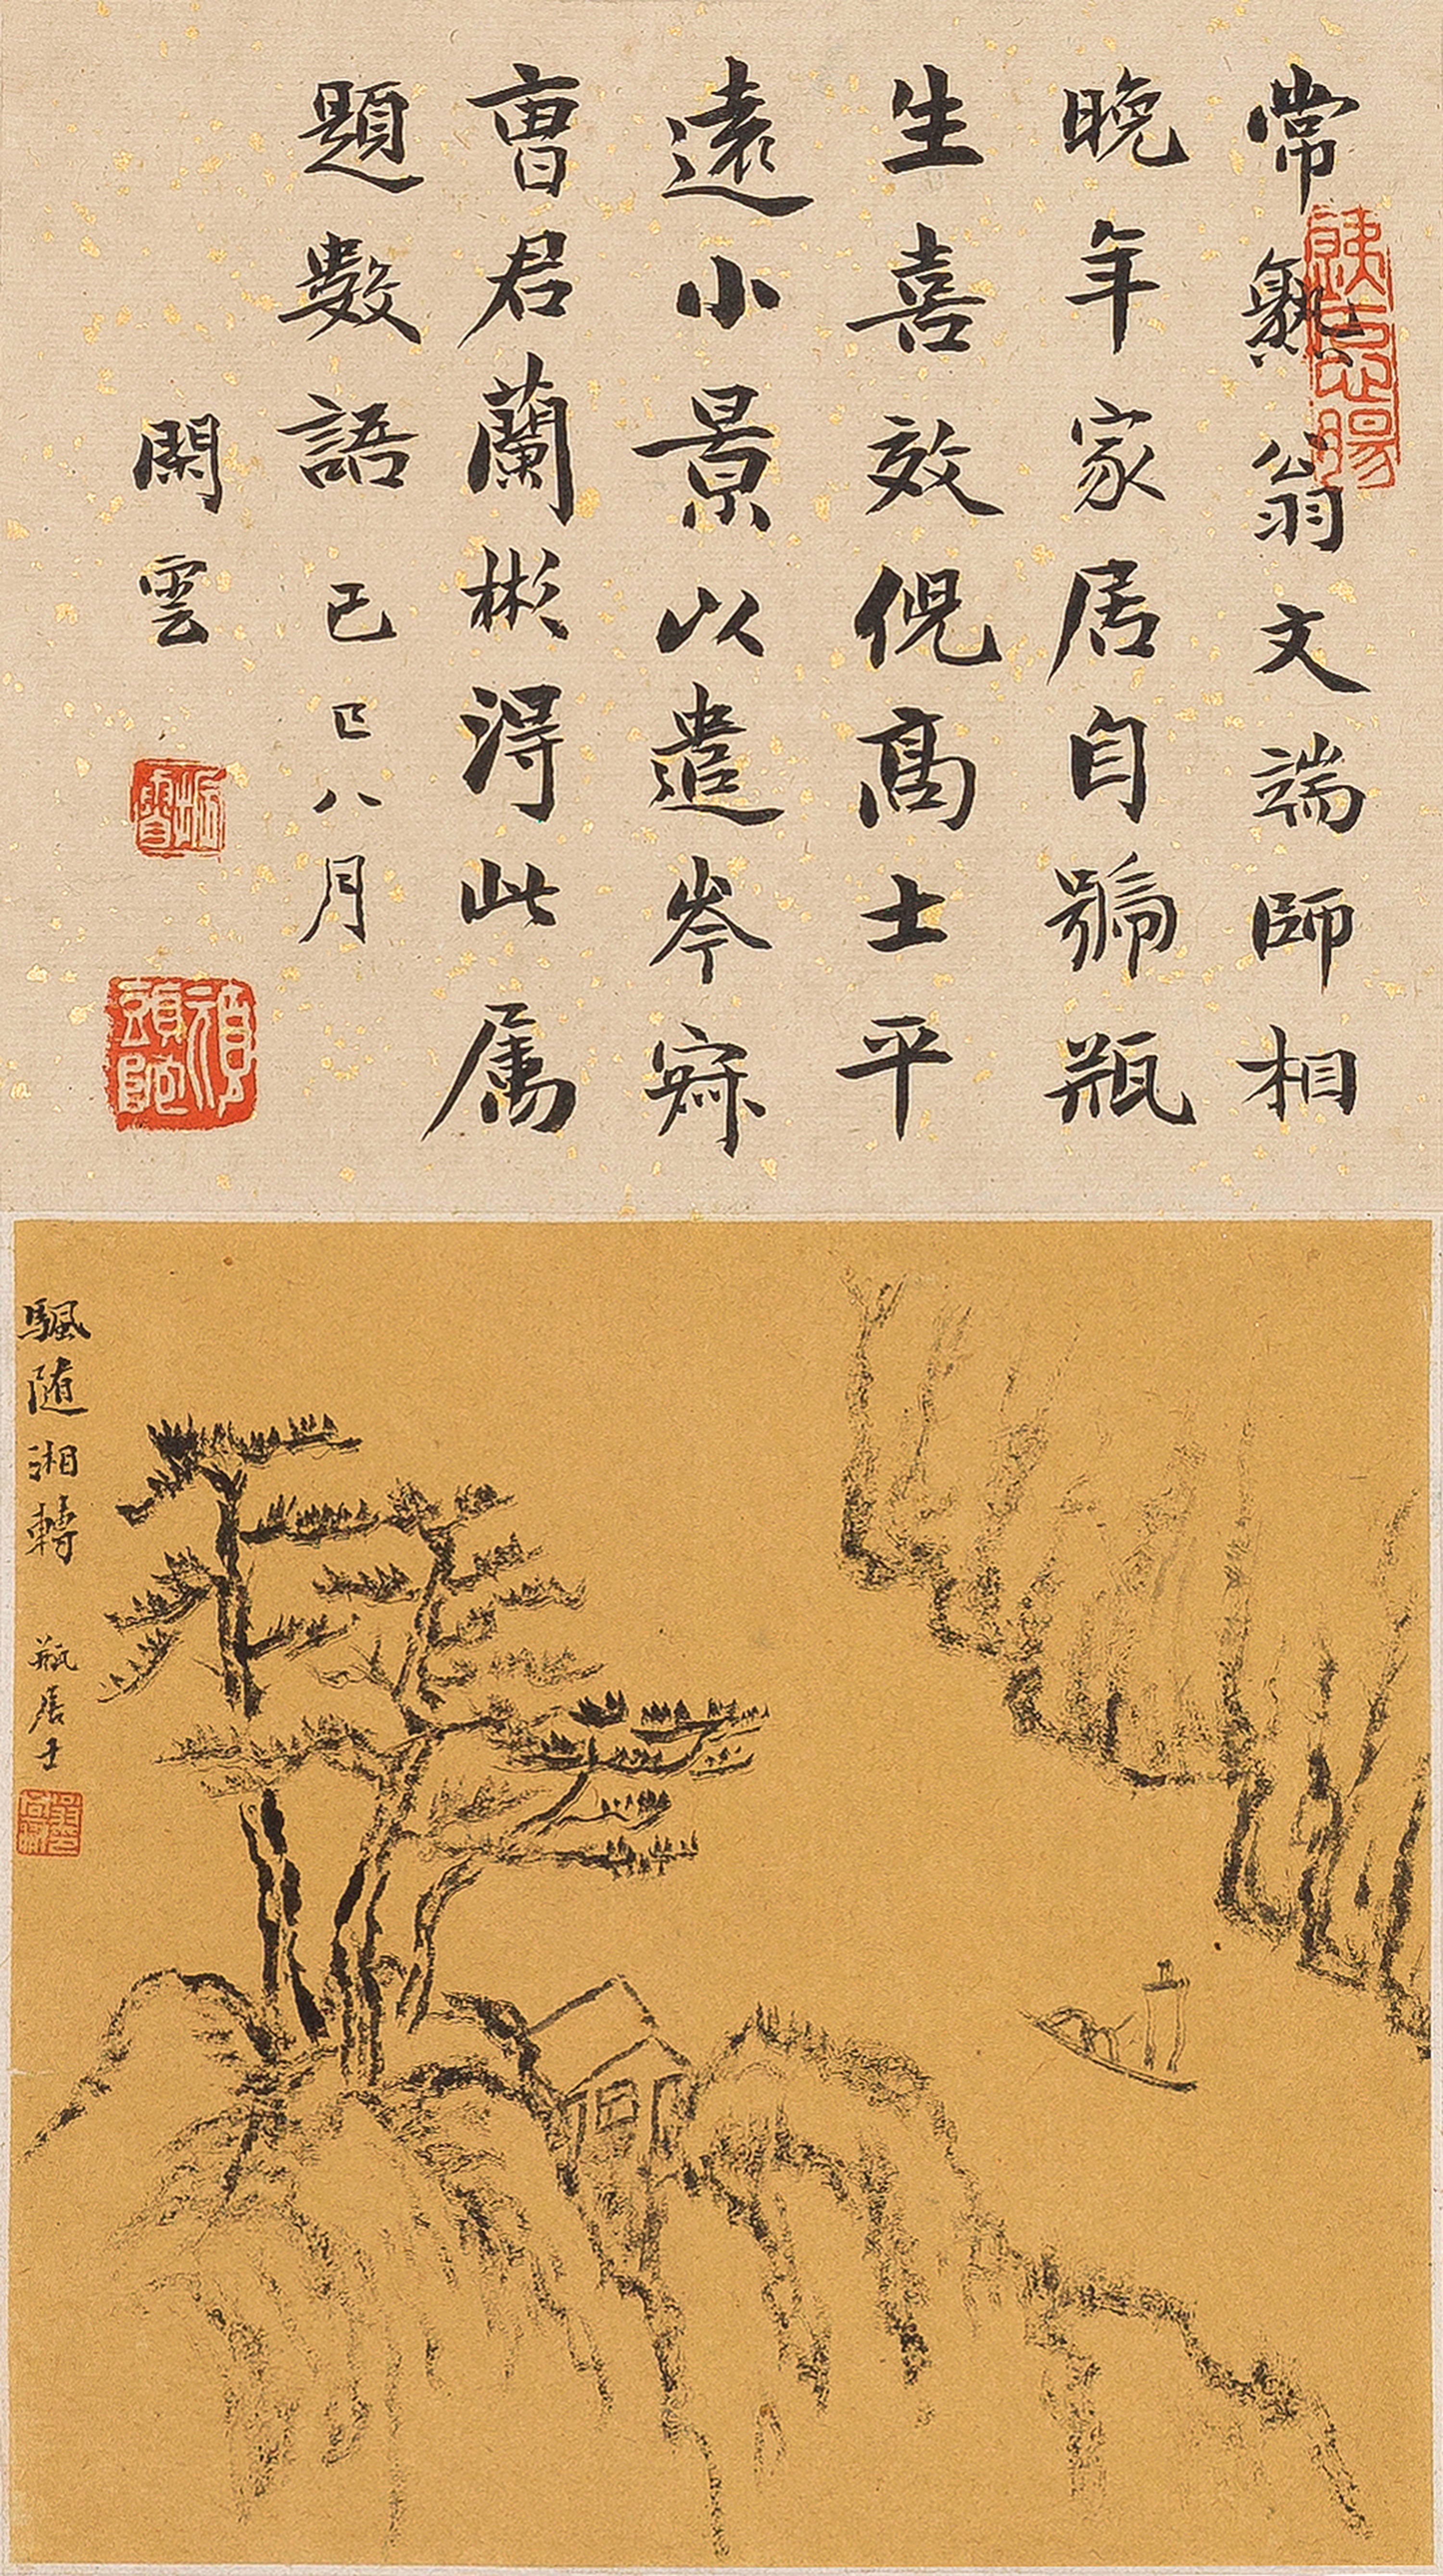 常熟翁文端師相
晚年家居自號瓶
生喜效倪高士平
遠小景以遣岑寂
曹君蘭彬得此属
題數語己巳八月
閑雲
颿随湘轉
瓶居士